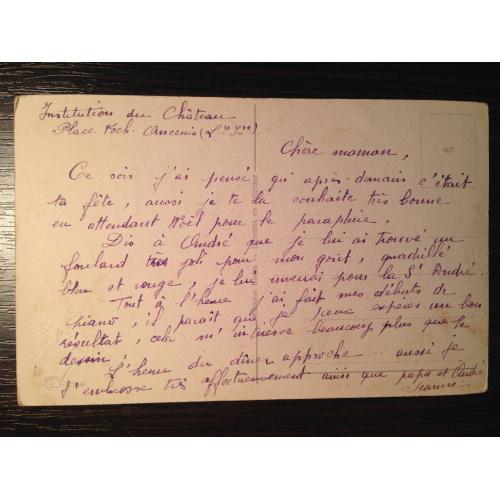 Institution du Château
Place Foch. Ancenis (L're Infre)
Chère maman,
Ce soir j'ai pensé qu'après-demain c'était
ta fête, aussi je te la souhaite très bonne
en attendant Noël pour le parapluie.
Dis à André que je lui ai trouvé un
foulard très joli pour mon goût, quadrillé
bleu et rouge, je lui enverrai pour la St André.
Tout à l'heure j'ai fait mes débuts de
piano, il paraît que je peux espérer un bon
résultat, cela m'intéresse beaucoup plus que le
dessin!
L'heure du dîner approche... aussi je
t'embrasse très affectueusement ainsi que papa et André
Jeanne